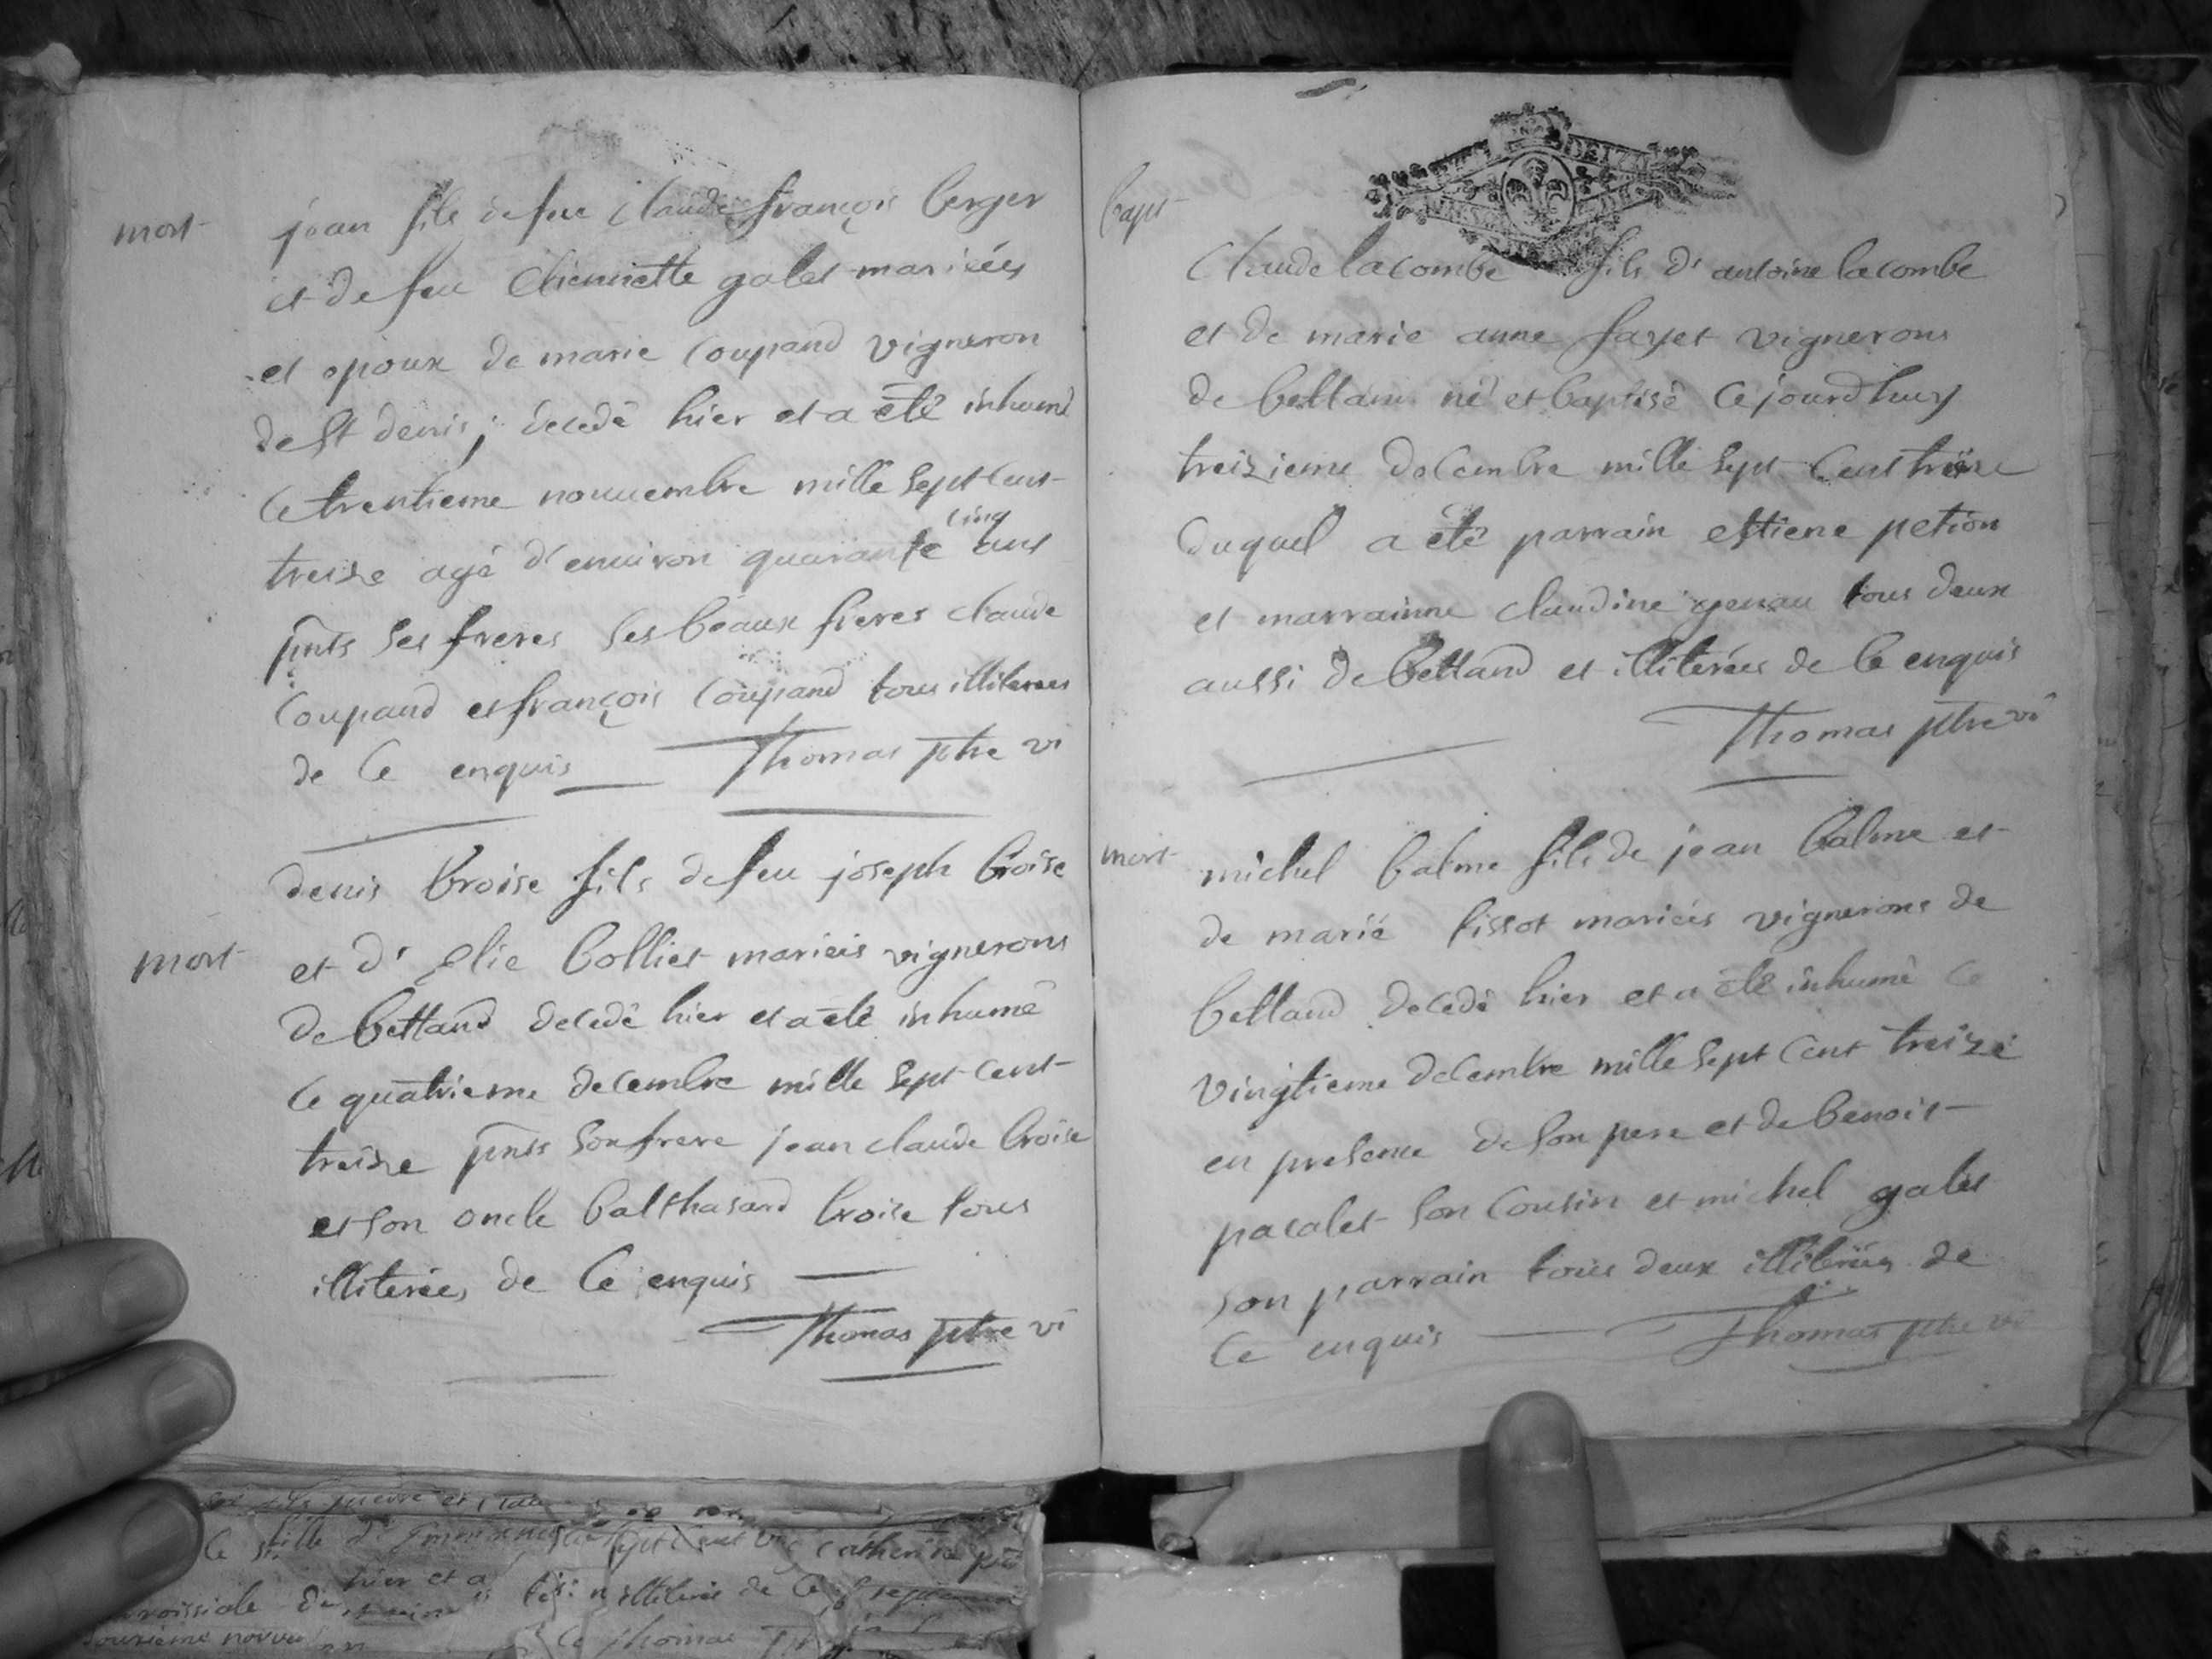 mort
jean fils de feu claude françois berger
et de feu Etiennette galet mariées
et epoux de marie Coupand vigneron
de st denis; decedé hier et a été inhumé
Ce trentieme nouuembre mille sept Cent
treize agé d'enuiron quarante cinq ans
pnts ses freres ses beaux freres claude
Coupand et françois Coupand tous illiterees
de Ce enquis Thomas ptre vi
mort
denis broise fils de feu joseph broise
et d' Elie bolliet mariés vignerons
de bettand decedé hier et a été inhumé
Ce quatrieme decembre mille sept Cent
treize pnts son frere jean claude broise
et son oncle balthasard broise tous
illiterées de Ce enquis
Thomas ptre vi
bapt
Claude lacombe fils d' antoine lacombe
et de marie anne fayet vignerons
de bettand né et baptisé Cejourdhuy
treizieme decembre mille sept Cent treize
duquel a été parrain estiene petion
et marrainne claudine tous deux
aussi de bettand et illiterées de Ce enquis
Thomas ptre vi
mort
michel balme fils de jean balme et
de marie tissot mariés vignerons de
bettand decedé hier et a été inhumé Ce
vingtieme decembre mille sept Cent treize
en presence de son pere et de benoit
pacalet son Cousin et michel galet
son parrain tous deux illiterées de
Ce enquis Thomas ptre vi
fille d'
hier et a
illiteres de Ce
Thomas